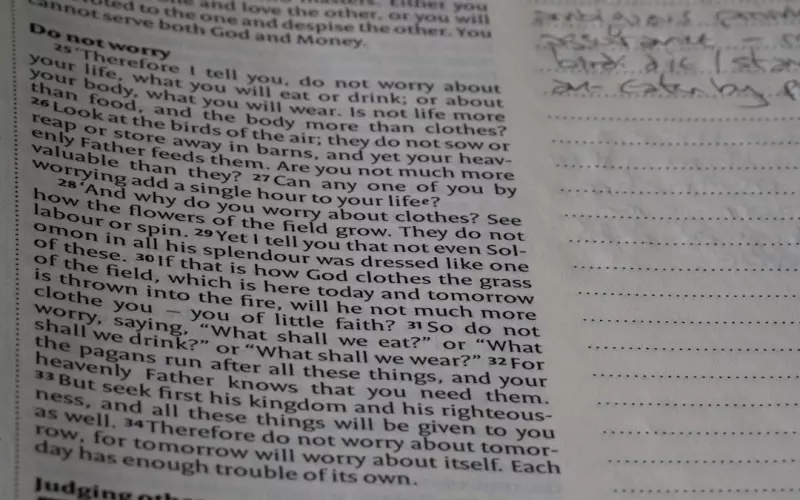 and love the other, or you will
to the one and despise the other. You
cannot serve both God and Money.
Do not worry
25 ‘Therefore I tell you, do not worry about
your life, what you will eat or drink; or about
your body, what you will wear. Is not life more
than food, and the body more than clothes?
26 Look at the birds of the air; they do not sow or
reap or store away in barns, and yet your heav-
enly Father feeds them. Are you not much more
valuable than they? 27 Can any one of you by
worrying add a single hour to your lifeᵉ?
28 ‘And why do you worry about clothes? See
how the flowers of the field grow. They do not
labour or spin. 29 Yet I tell you that not even Sol-
omon in all his splendour was dressed like one
of these. 30 If that is how God clothes the grass
of the field, which is here today and tomorrow
is thrown into the fire, will he not much more
clothe you – you of little faith? 31 So do not
worry, saying, “What shall we eat?” or “What
shall we drink?” or “What shall we wear?” 32 For
the pagans run after all these things, and your
heavenly Father knows that you need them.
33 But seek first his kingdom and his righteous-
ness, and all these things will be given to you
as well. 34 Therefore do not worry about tomor-
row, for tomorrow will worry about itself. Each
day has enough trouble of its own.
Judging